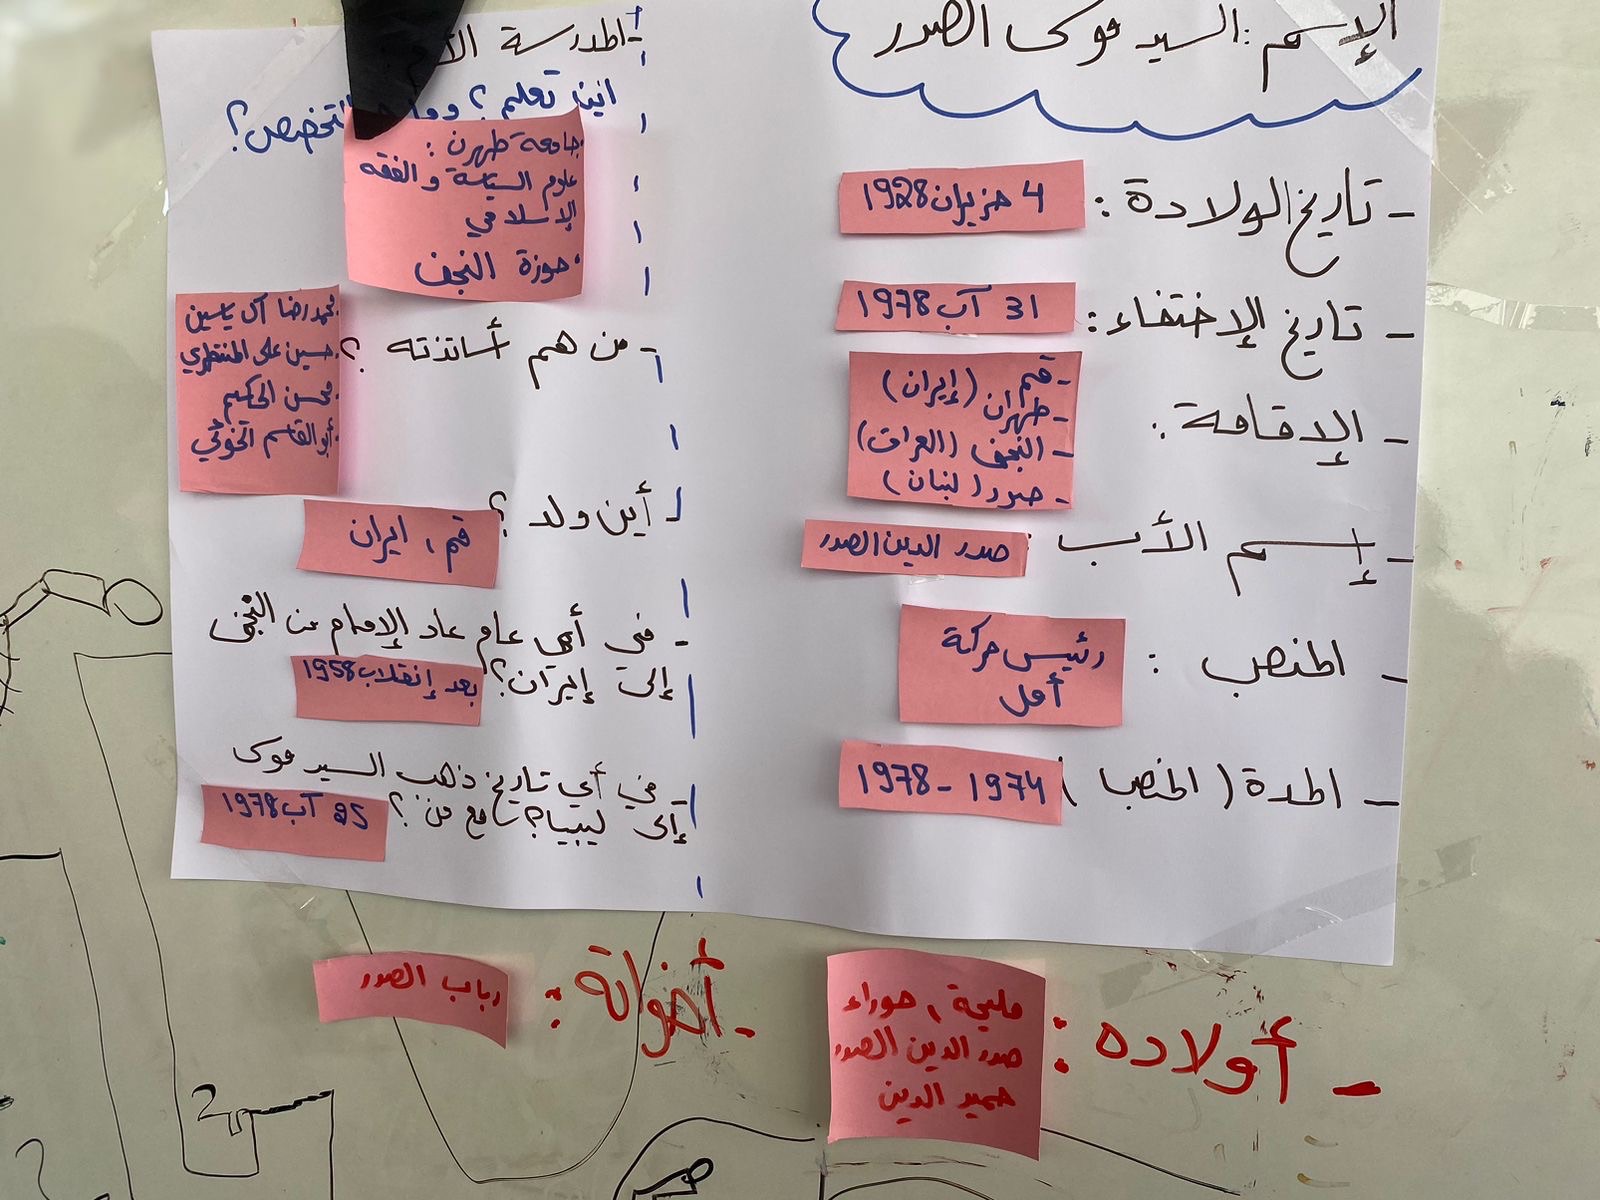 الإسم: السيد موسى الصدر
- تاريخ الولادة: 4 حزيران 1928
- تاريخ الإختفاء: 31 آب 1978
- الإقامة:
- قم
- طهران (إيران)
- النجف (العراق)
- صور (لبنان)
- إسم الأب: صدر الدين الصدر
- المنصب: رئيس حركة
أمل
- المدة (المنصب) 1974 - 1978
- المدرسة
اين تعلم؟ التخصص؟
جامعة طهرن:
علوم السياسة والفقه
الإسلامي
حوزة النجف
- من هم أساتذته؟
محمد رضا آل ياسين
حسين علي المنتظري
محسن الحكيم
أبو القاسم الخوئي
- أين ولد؟ قم، ايران
- في أي عام عاد الإمام من النجف
إلى إيران؟ بعد إنقلاب 1958
- في أي تاريخ ذهب السيد موسى
إلى ليبيا؟ مع من؟ 25 آب 1978
- أولاده:
مليحة، حوراء
صدر الدين الصدر
حميد الدين
- أخواتة: رباب الصدر
2